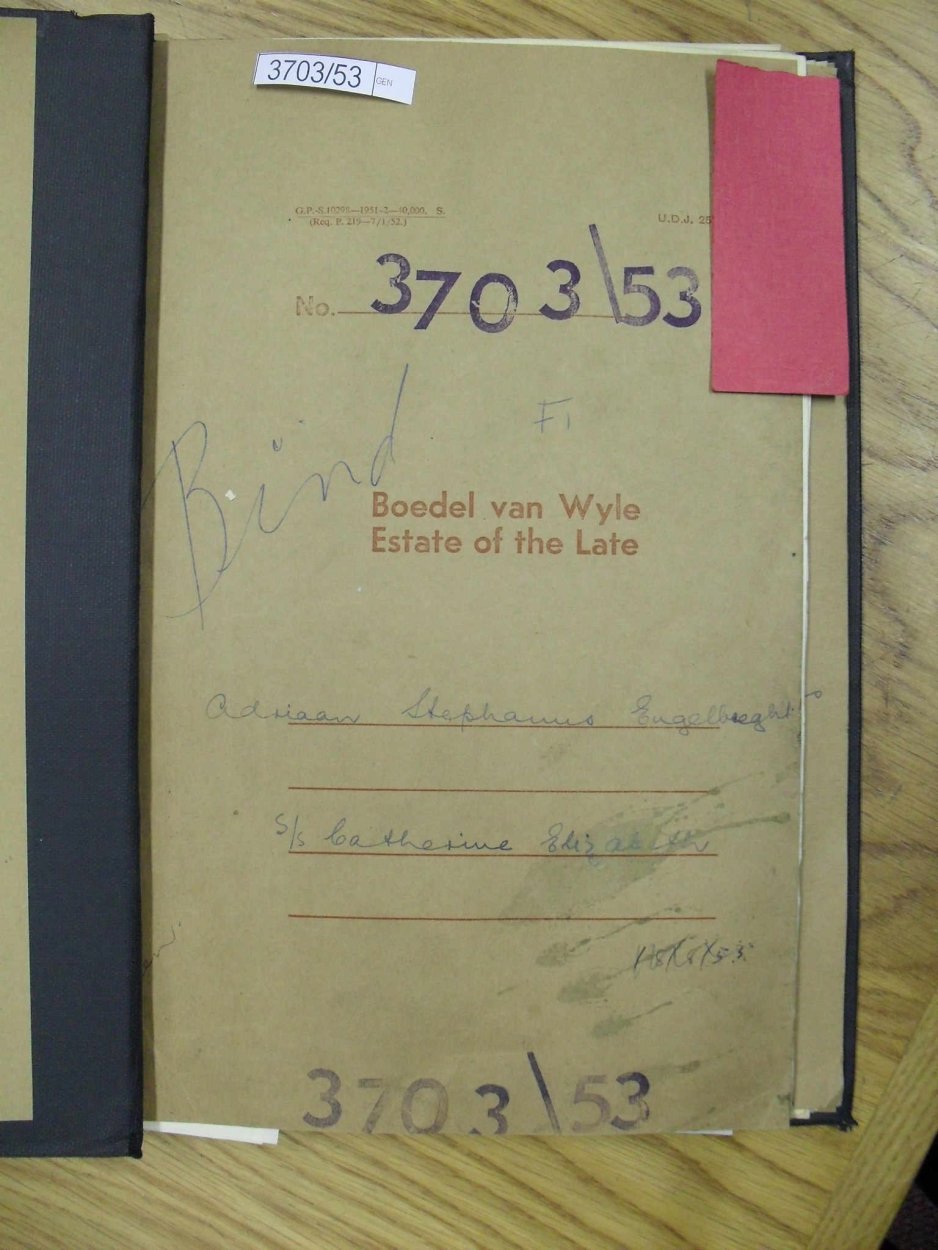 3703/53 GEN
G.P.-S.10298—1951-2—40,000. S.
(Req. P. 219—7/1/52.)
U.D.J. 25
No. 3703\53
Bind
F1
Boedel van Wyle
Estate of the Late
Adriaan Stephanus Engelbreght
S/s Catherine Elizabeth
3703\53